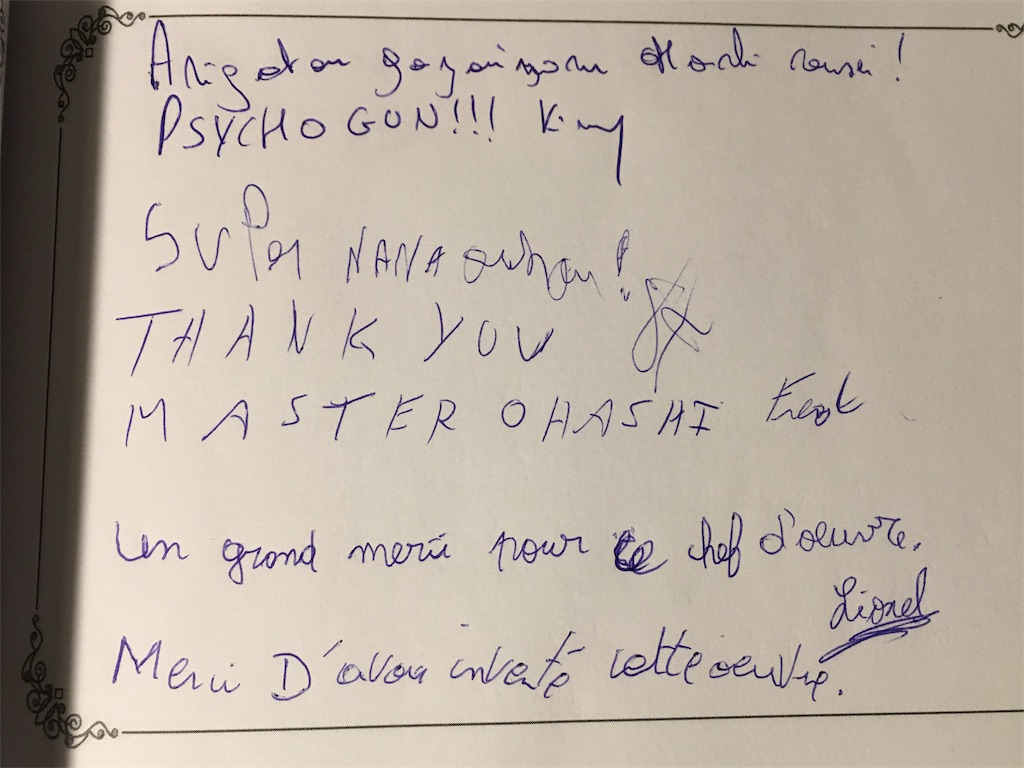 Arigatou gozaimasu
PSYCHOGUN!!!
SUPER NANA
THANK YOU
MASTER OHASHI
Un grand merci pour ce chef d'oeuvre.
Lionel
Merci D'avoir inventé cette oeuvre.